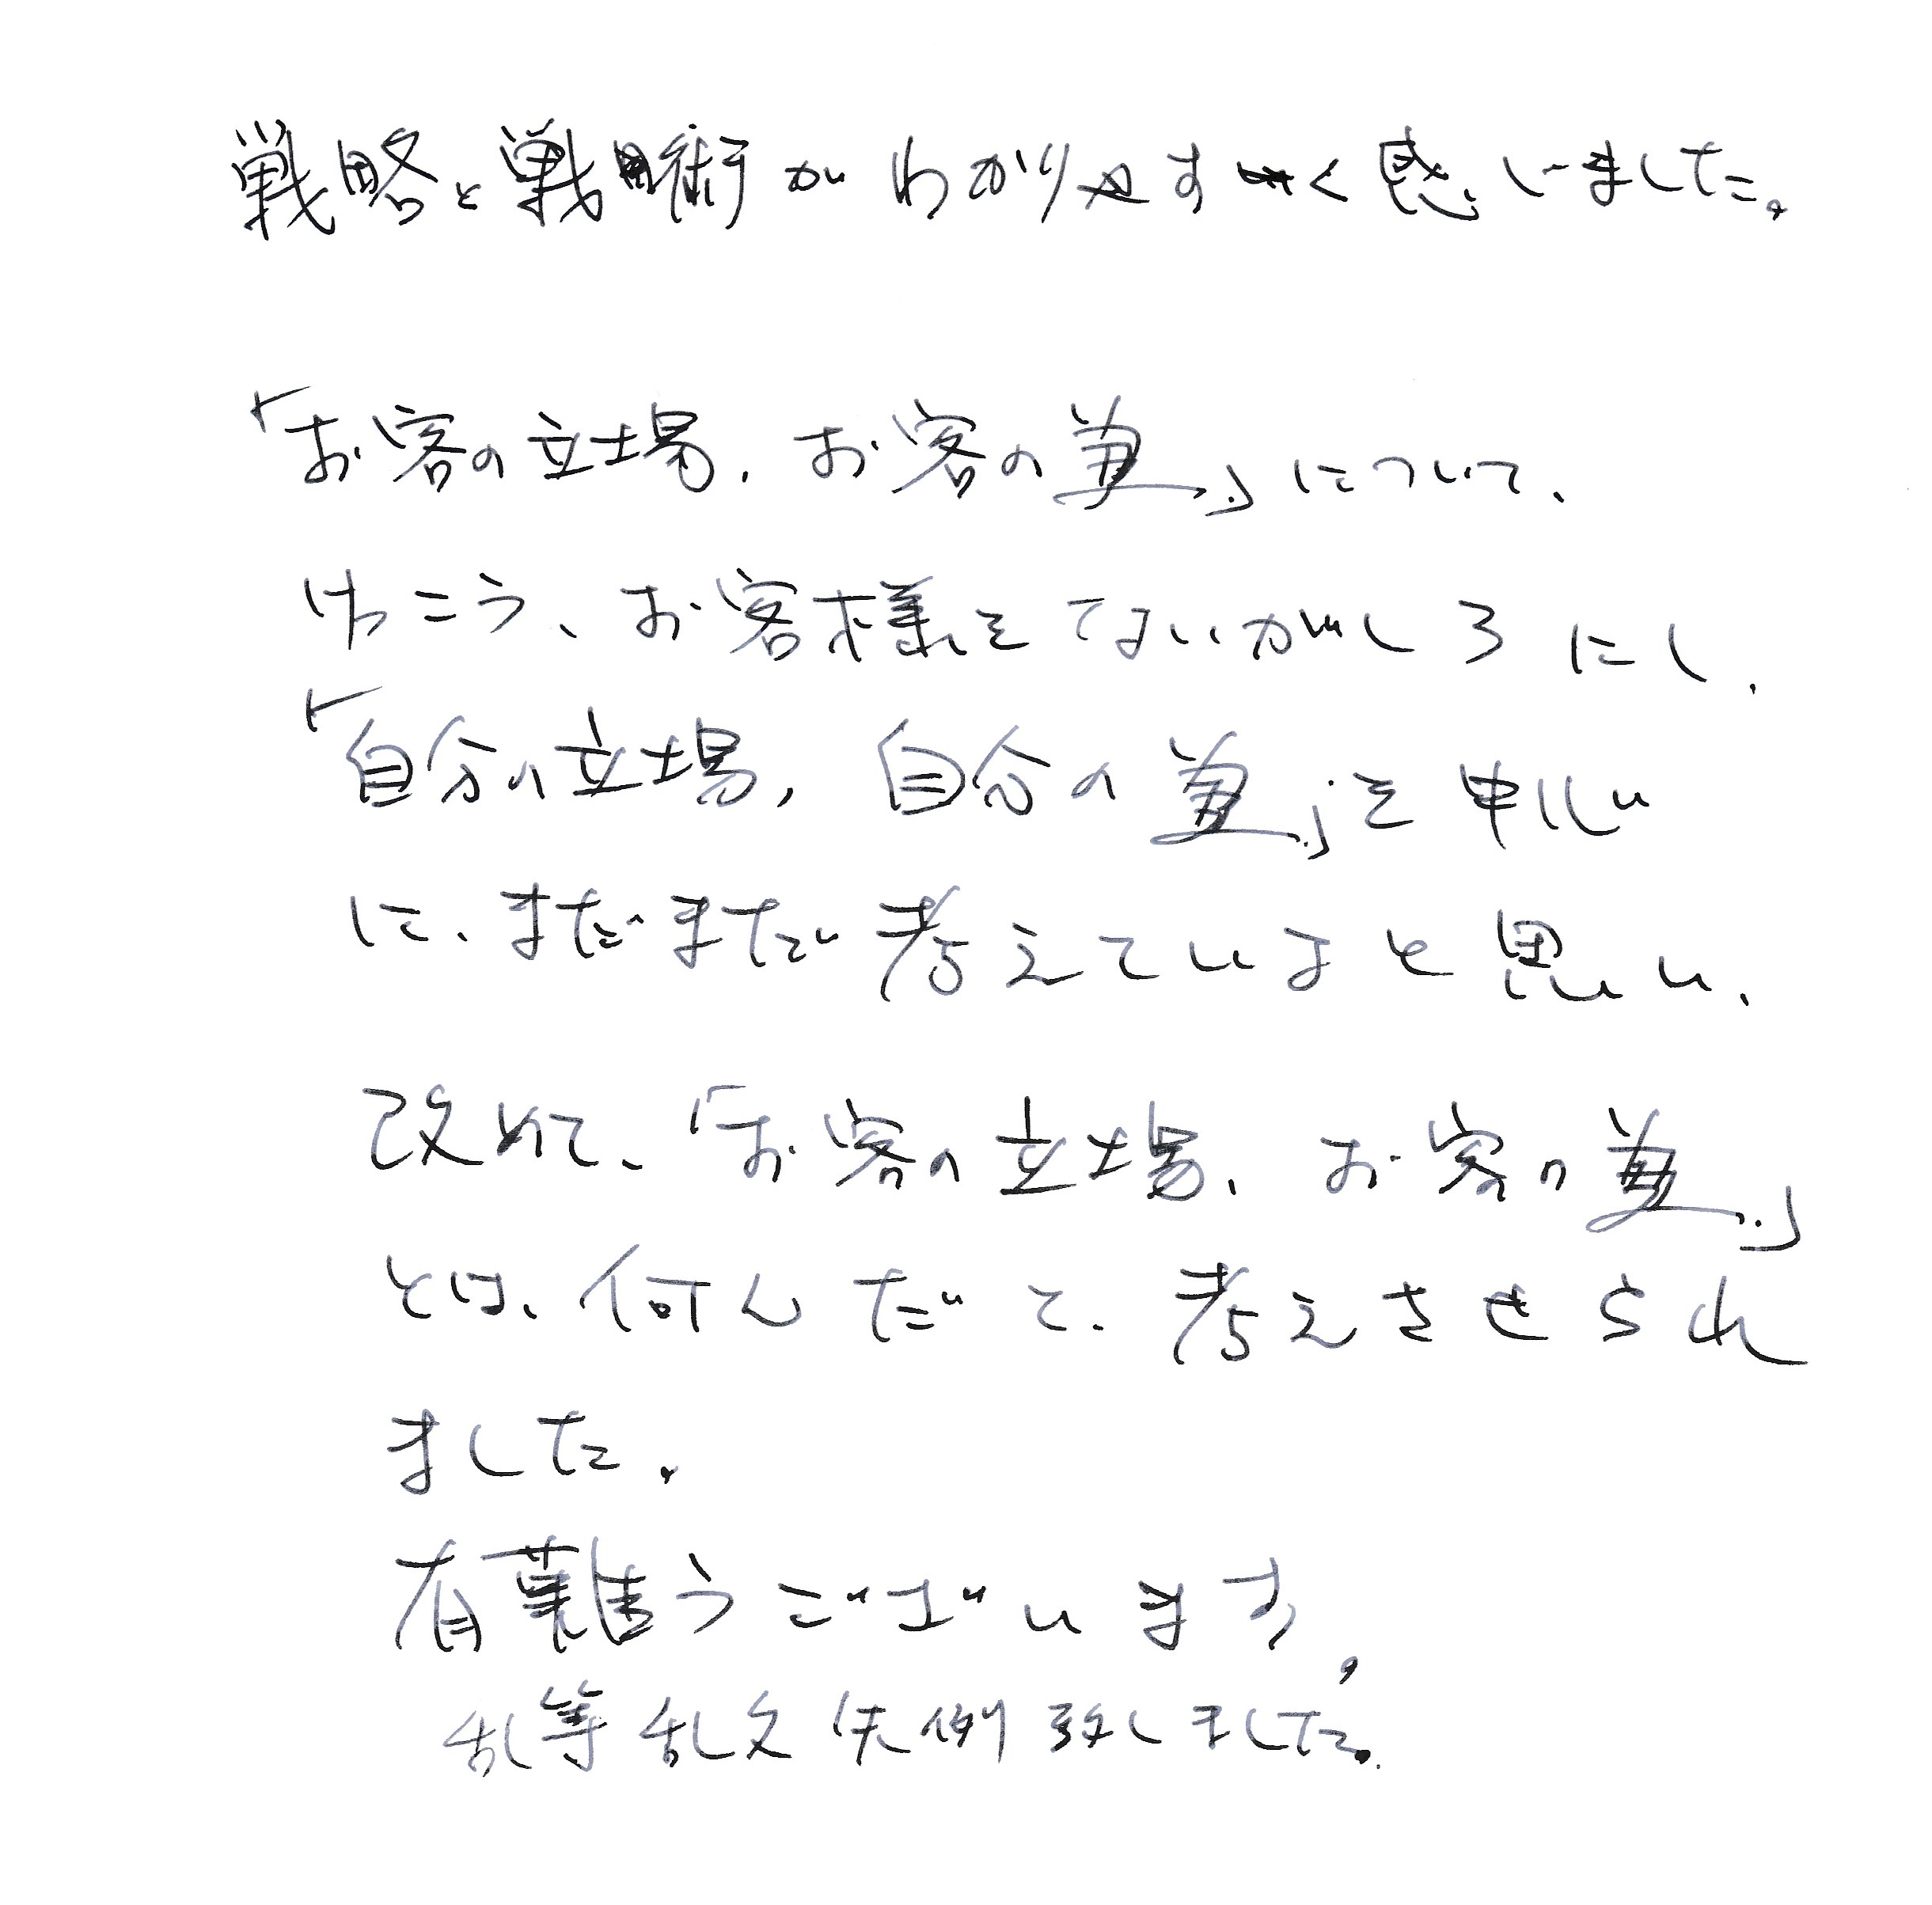 戦略と戦術がわかりやすく感じました。
「お客の立場、お客の道」について、
けっこう、お客様をないがしろにし、
「自分の立場、自分の道」を中心
に、まだまだ考えていると思い、
改めて、「お客の立場、お客の道」
とは、何んだと、考えさせられ
ました。
有難うございます。
乱筆乱文失例致しました。